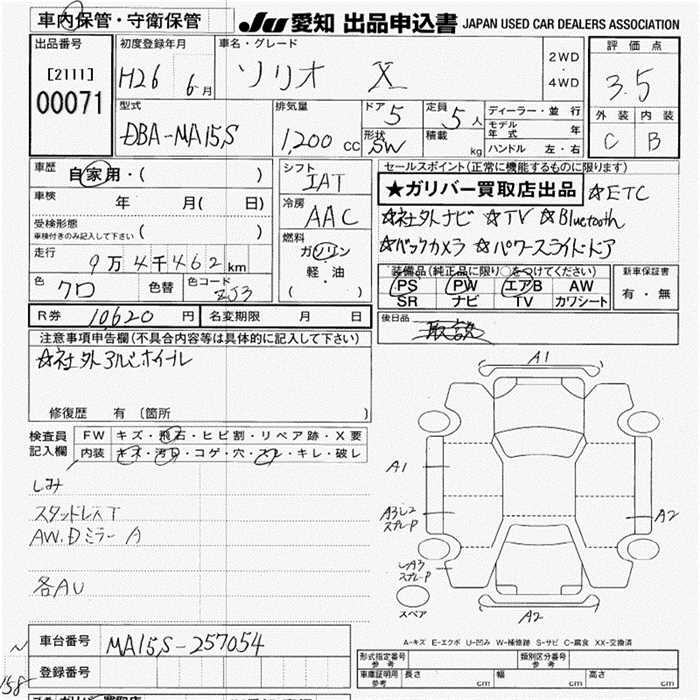 車内保管・守衛保管
JU 愛知 出品申込書 JAPAN USED CAR DEALERS ASSOCIATION
出品番号 初度登録年月 車名・グレード 評価点
[2111] H26 6月 ソリオ X 2WD・4WD 3.5
00071
型式 排気量 ドア 5 定員 5人 ディーラー・並行 外装 内装
DBA-MA15S 1,200cc 形状 SW 積載 kg モデル年式 年 C B
ハンドル 左・右
車歴 自家用・( ) シフト セールスポイント(正常に機能するものに限ります)
IAT ★ガリバー買取店出品 ☆ETC
車検 年 月( 日) 冷房 ☆社外ナビ ☆TV ☆Bluetooth
受検形態 AAC
車検付きのみ記入して下さい( ) ☆バックカメラ ☆パワースライドドア
走行 燃料
9万4千462km ガソリン 装備品(純正品に限り○をつけてください) 新車保証書
色 色替 色コード 軽・油 PS PW エアB AW 有・無
クロ ZJ3 ( ) SR ナビ TV カワシート
R券 10,620円 名変期限 月 日 後日品
取説
注意事項申告欄(不具合内容等は具体的に記入して下さい)
☆社外アルミホイール
修復歴 有 〔箇所 〕
検査員 FW キズ・飛石・ヒビ割・リペア跡・X要
記入欄 内装 キズ・汚レ・コゲ・穴・スレ・キレ・破レ
しみ
スタッドレス下
AW.Dミラー A
各AU
A1
A1
A3
スプレーP
A2
A3
スプレーP
スペア
A2
A-キズ E-エクボ U-凹み W-補修跡 S-サビ C-腐食 XX-交換済
車台番号 MA15S-257054
登録番号
形式指定番号 参考 類別区分番号 参考
車庫証明用 参考 長さ cm 幅 cm 高さ cm
158